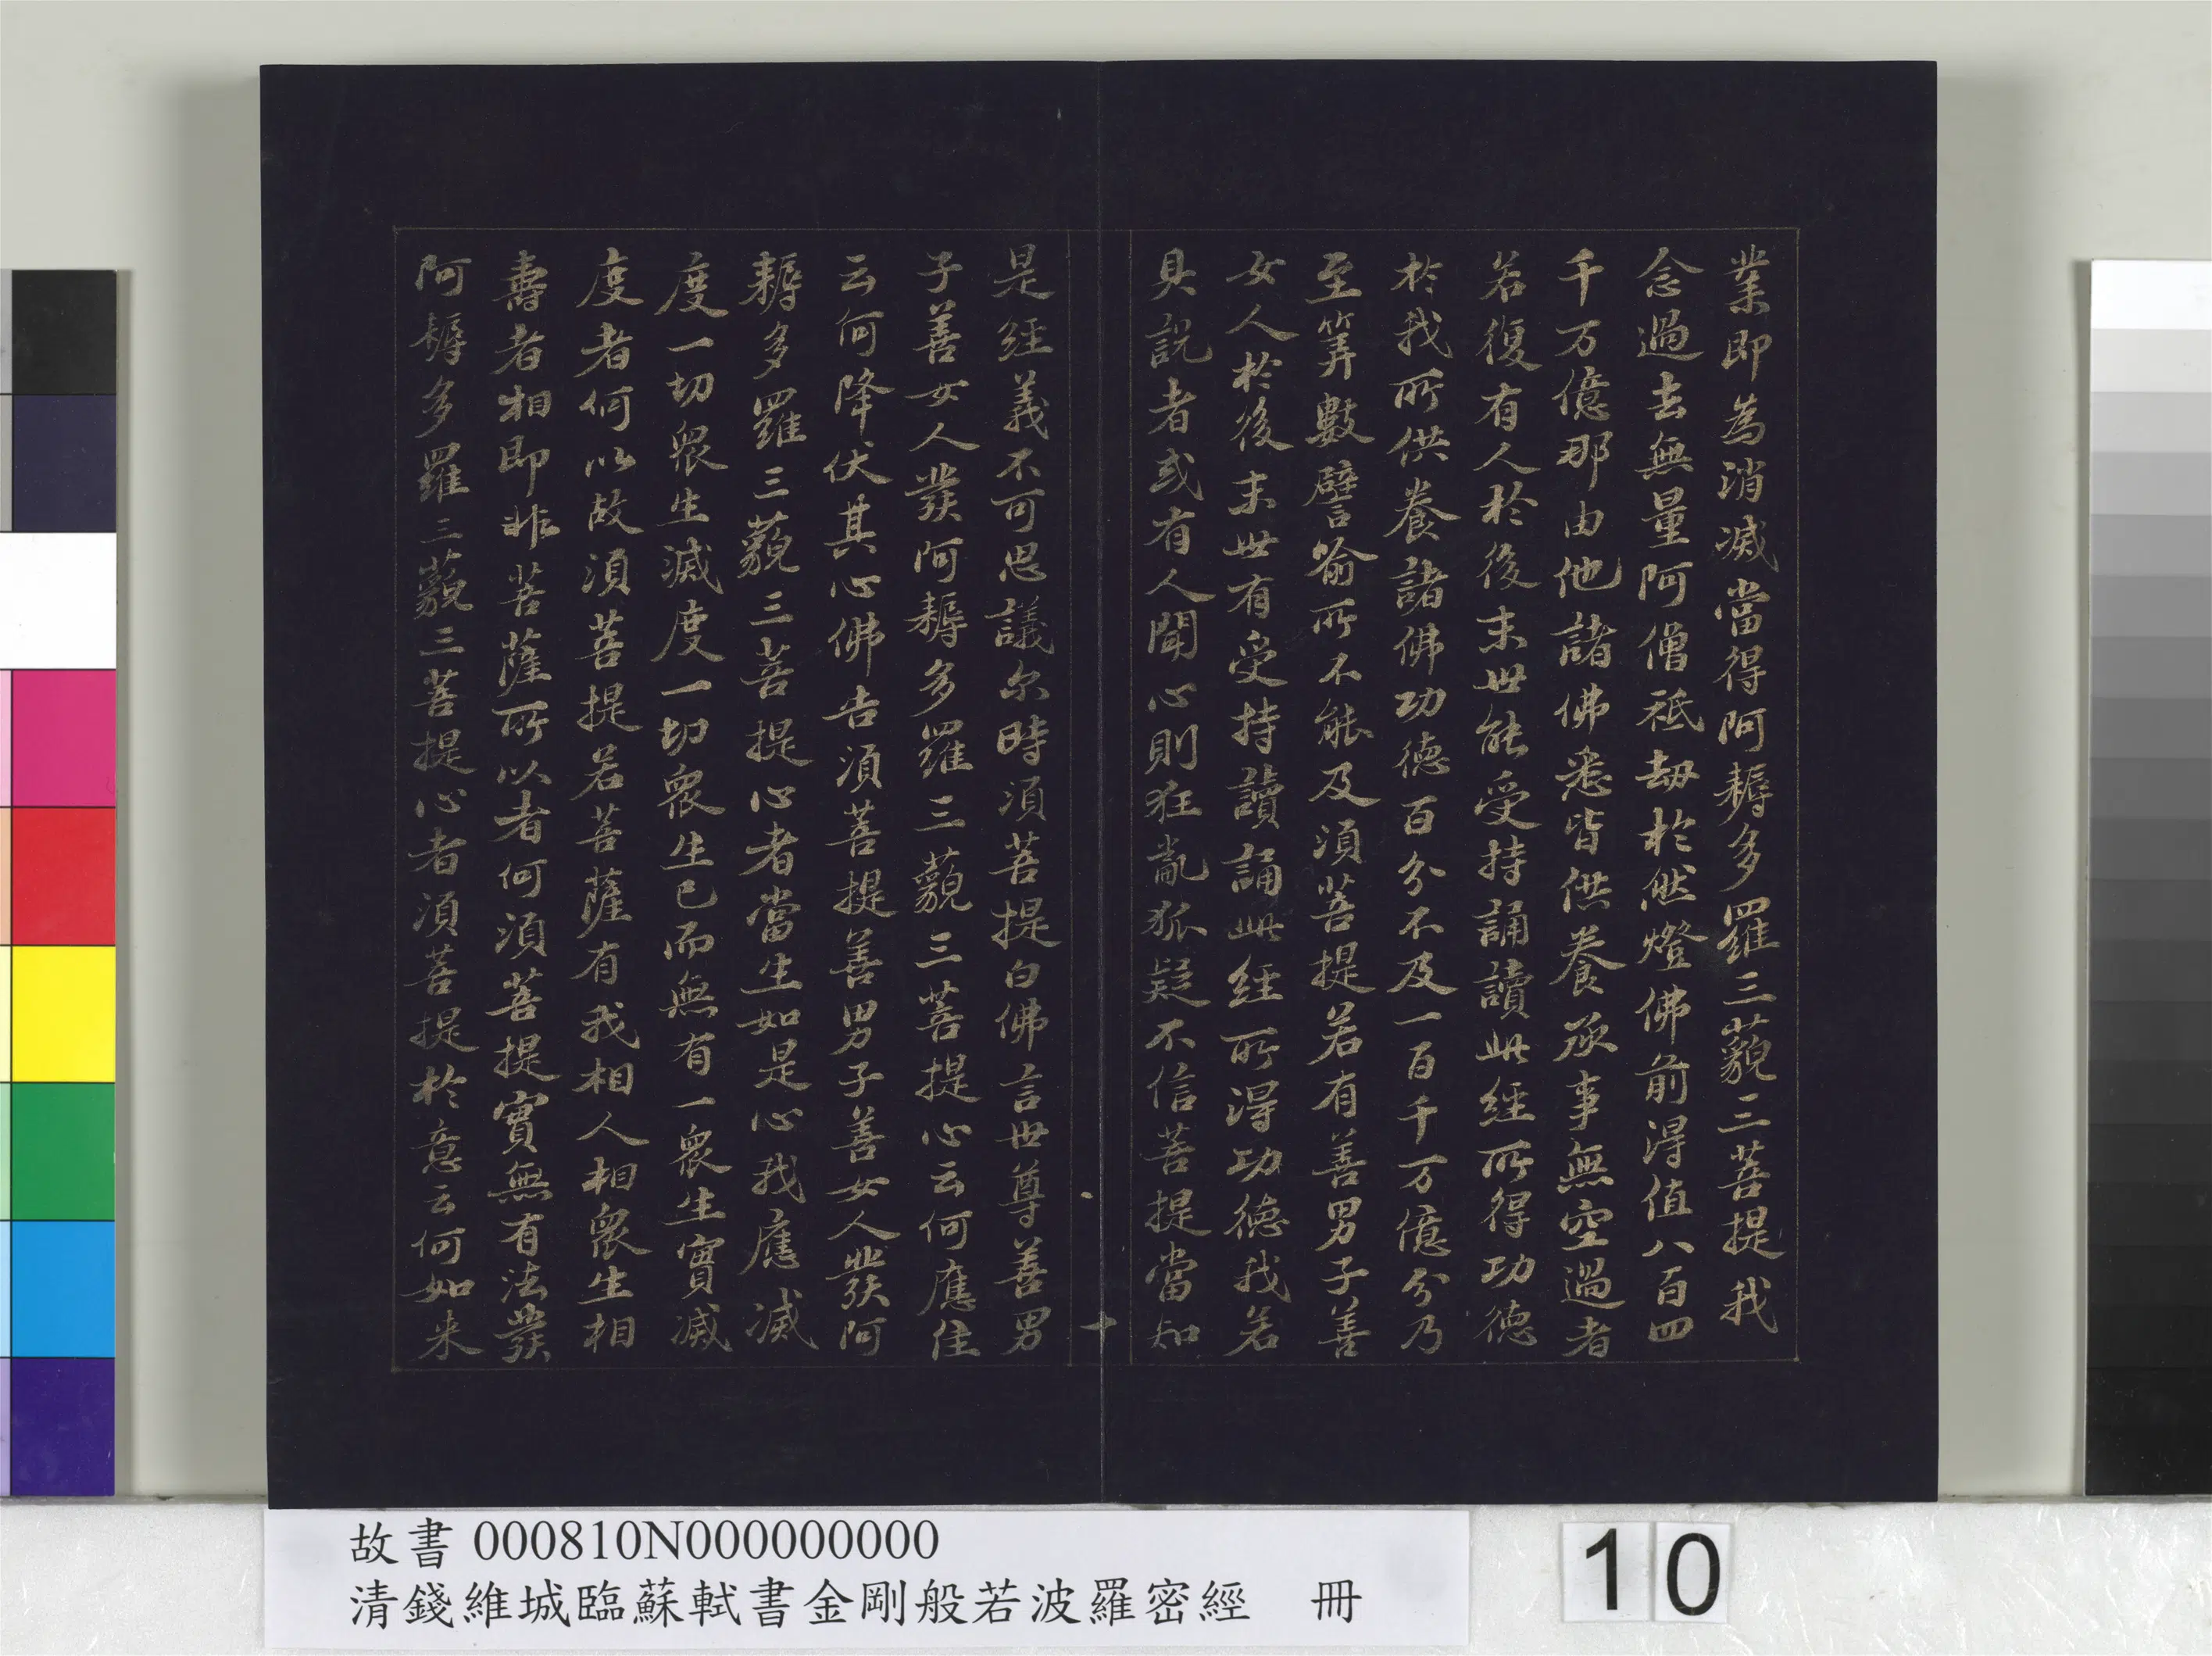 業即為消滅當得阿耨多羅三藐三菩提我
念過去無量阿僧祇劫於然燈佛前得值八百四
千万億那由他諸佛悉皆供養承事無空過者
若復有人於後末世能受持誦讀此經所得功德
於我所供養諸佛功德百分不及一百千万億分乃
至筭數譬喻所不能及須菩提若有善男子善
女人於後末世有受持讀誦此經所得功德我若
具説者或有人聞心則狂亂狐疑不信菩提當知
是經義不可思議尔時須菩提白佛言世尊善男
子善女人發阿耨多羅三藐三菩提心云何應住
云何降伏其心佛告須菩提善男子善女人發阿
耨多羅三藐三菩提心者當生如是心我應滅
度一切衆生滅度一切衆生已而無有一衆生實滅
度者何以故須菩提若菩薩有我相人相衆生相
壽者相即非菩薩所以者何須菩提實無有法發
阿耨多羅三藐三菩提心者須菩提於意云何如来
故書 000810N000000000
清錢維城臨蘇軾書金剛般若波羅密經 冊
10